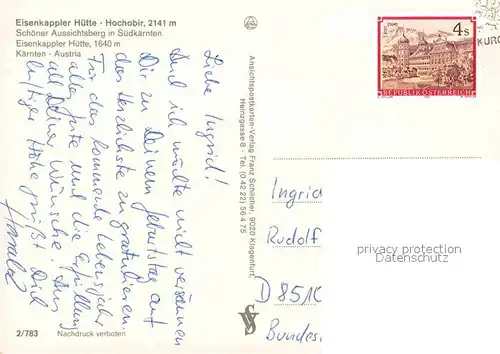 Eisenkappler Hütte · Hochobir, 2141 m
Schöner Aussichtsberg in Südkärnten
Eisenkappler Hütte, 1640 m
Kärnten · Austria
Liebe Ingrid!
Und ich möchte nicht versäumen
Dir zu Deinem Geburtstag auf
das Herzlichste zu gratulieren.
Für das kommende Lebensjahr
alles Gute und die Erfüllung
all Deiner Wünsche. Aus
luftiger Höhe grüßt Dich
Harald
2/783 Nachdruck verboten
Ansichtspostkarten-Verlag Franz Schilcher, 9020 Klagenfurt,
Heinzgasse 8 · Tel. (0 42 22) 56 4 75
4 S
STIFT STAMS
REPUBLIK ÖSTERREICH
KURO
Ingrid
Rudolf
D 8510
Bundes
privacy protection
Datenschutz